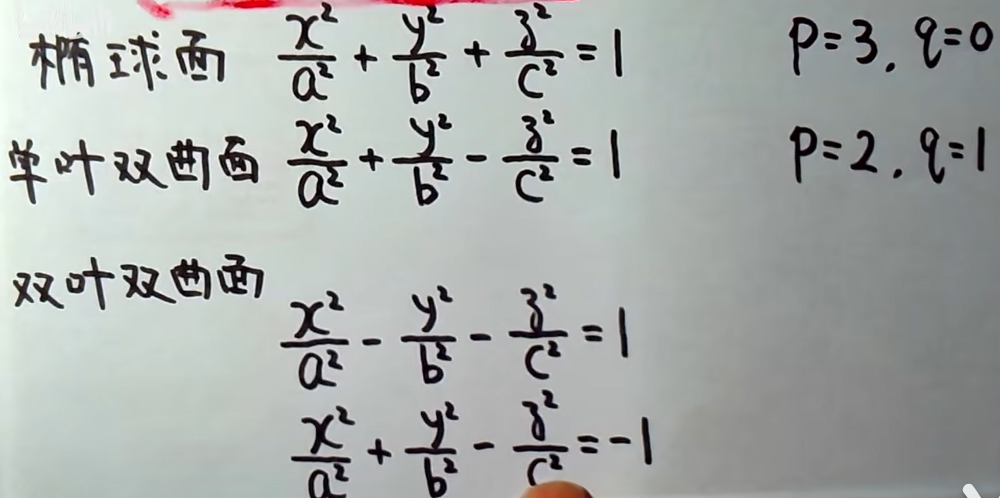 椭球面 x²/a² + y²/b² + z²/c² = 1 p=3, q=0
单叶双曲面 x²/a² + y²/b² - z²/c² = 1 p=2, q=1
双叶双曲面
x²/a² - y²/b² - z²/c² = 1
x²/a² + y²/b² - z²/c² = -1